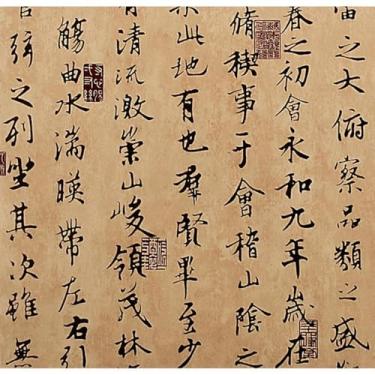 之大俯察品類之盛
春之初會永和九年歲在
脩稧事于會稽山陰之
此地有也羣賢畢至少
有清流激崇山峻領茂林
觴曲水湍暎帶左右引
弦之列坐其次雖無